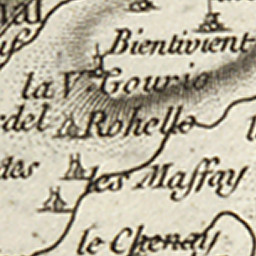 val
Bientivient
la V. Gourio
rdel Rohello
des les Massay
le Chenay